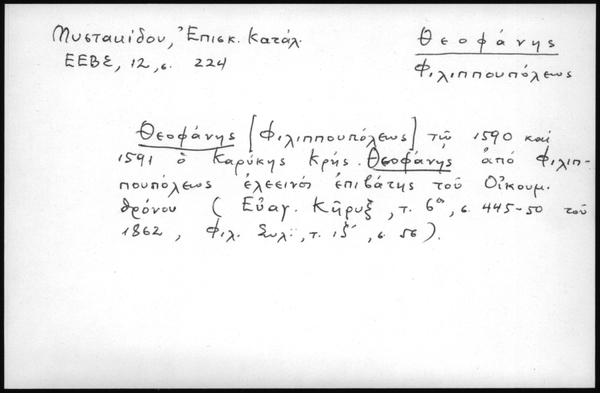 Μυστακίδου, Ἐπισκ. Κατάλ.
ΕΕΒΣ, 12, σ. 224
Θεοφάνης
Φιλιππουπόλεως
Θεοφάνης [Φιλιππουπόλεως] τῷ 1590 καὶ
1591 ὁ Καρύκης Κρής. Θεοφάνης ἀπὸ Φιλιπ-
πουπόλεως ἐλεεινὸς ἐπιβάτης τοῦ Οἰκουμ.
θρόνου ( Εὐαγ. Κῆρυξ, τ. 6ος, σ. 445-50 τοῦ
1862, Φιλ. Συλ., τ. ιζ΄, σ. 56 ).